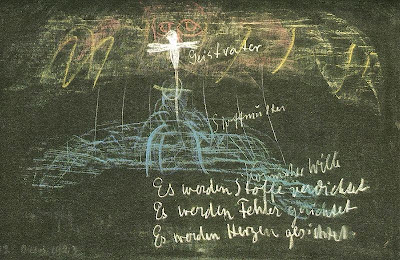 Geistvater
Stoffmutter
kosmischer Wille
Es werden Stoffe verdichtet
Es werden Fehler gerichtet
Es werden Herzen gesichtet.